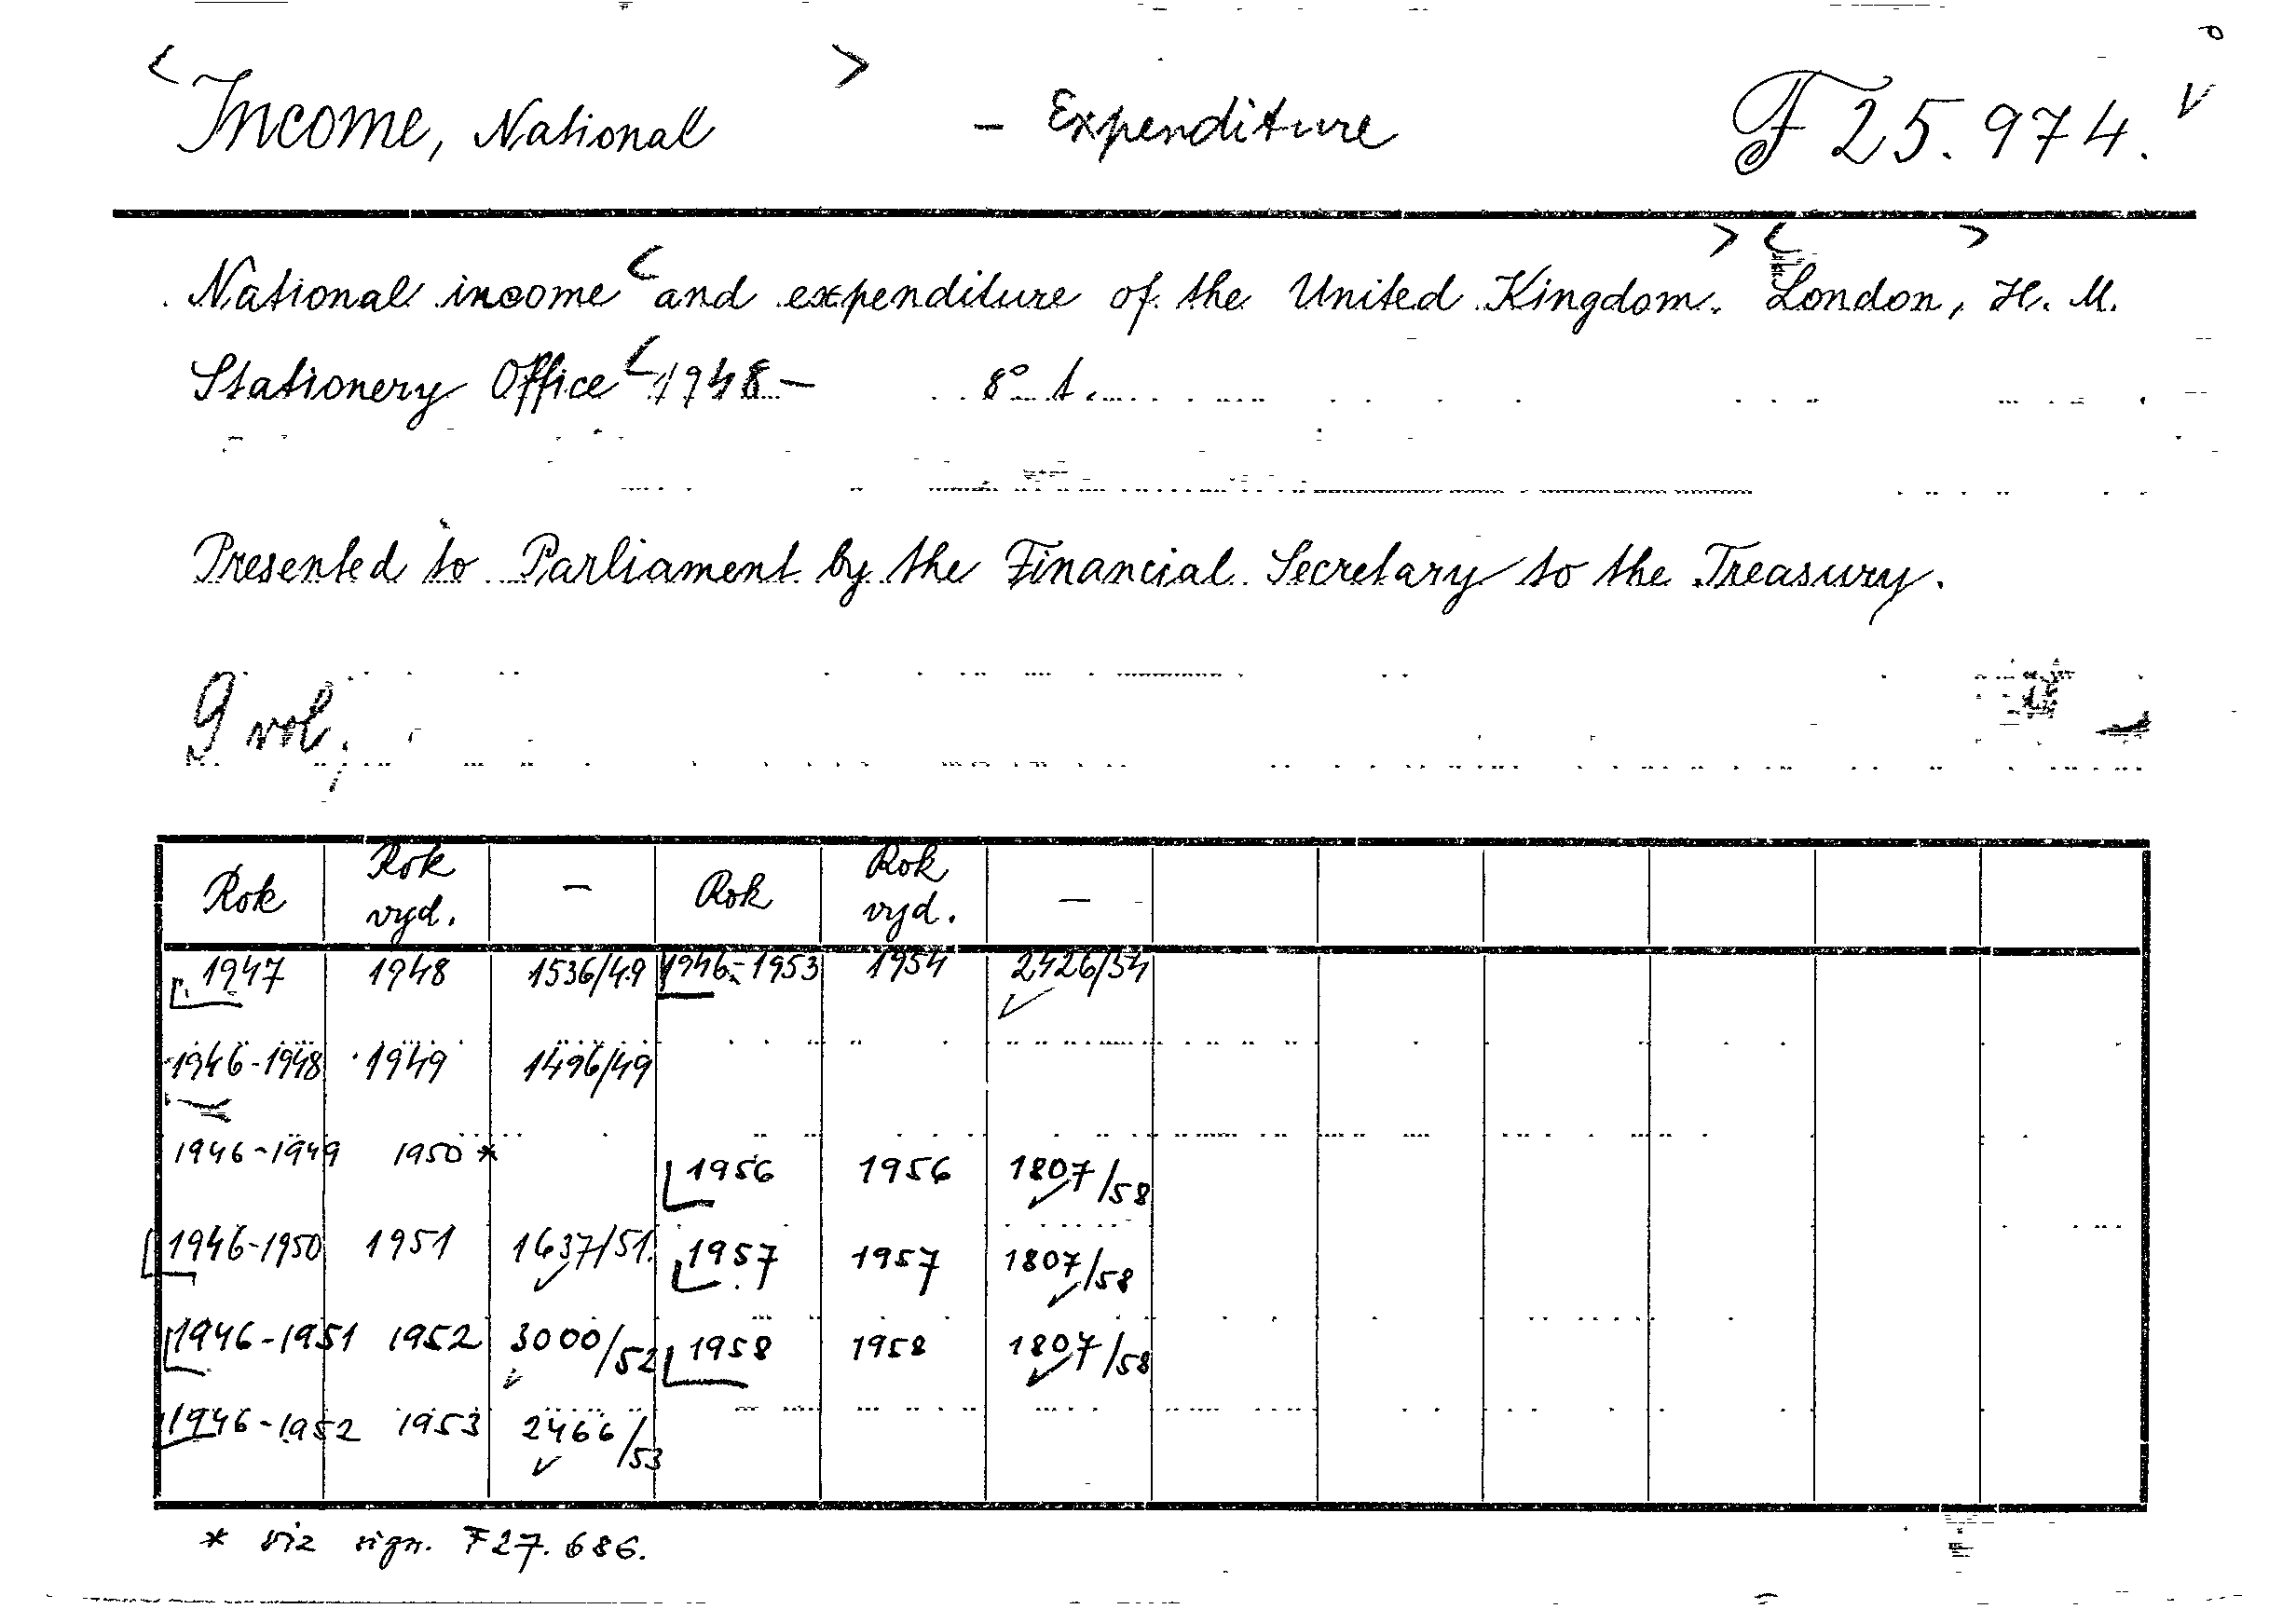 < Income, National > - Expenditure F 25.974. v
National income < and expenditure of the United Kingdom. > < London, > H. M.
Stationery Office < 1948 - 8° t.
Presented to Parliament by the Financial Secretary to the Treasury.
9 vol.
Rok Rok vyd. - Rok Rok vyd. -
1947 1948 1536/49 1946-1953 1954 2426/54
1946-1948 1949 1496/49
1946-1949 1950 * 1956 1956 1807/58
1946-1950 1951 1637/51. 1957 1957 1807/58
1946-1951 1952 3000/52 1958 1958 1807/58
1946-1952 1953 2466/53
* viz sign. F 27.686.